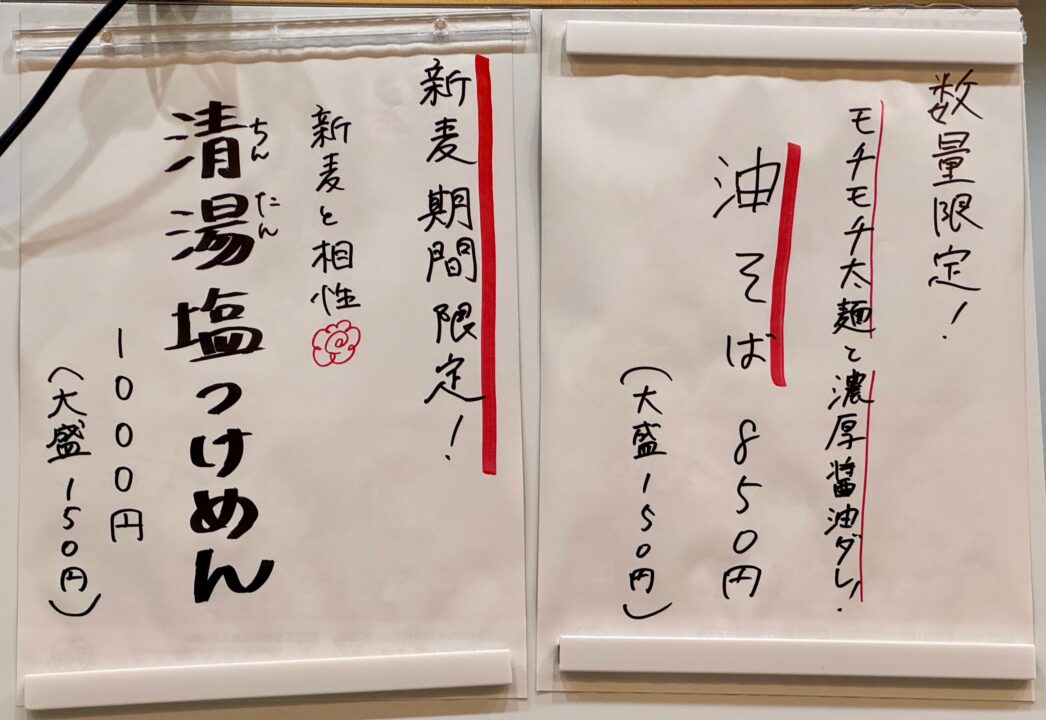 数量限定!
モチモチ太麺と濃厚醤油ダレ!
油そば 850円
(大盛150円)
新麦期間限定!
新麦と相性
清湯塩つけめん
ちんたん
1000円
(大盛150円)